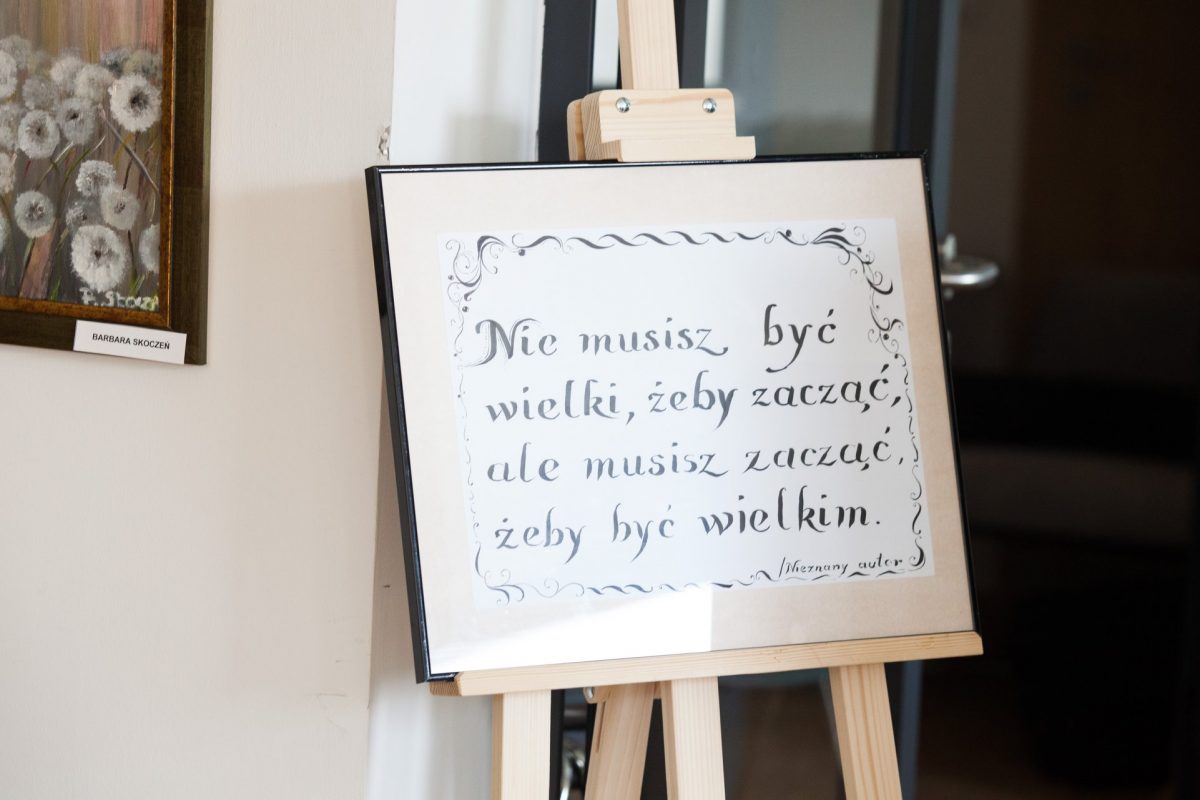 BARBARA SKOCZEŃ
Nie musisz być
wielki, żeby zacząć,
ale musisz zacząć,
żeby być wielkim.
/Nieznany autor